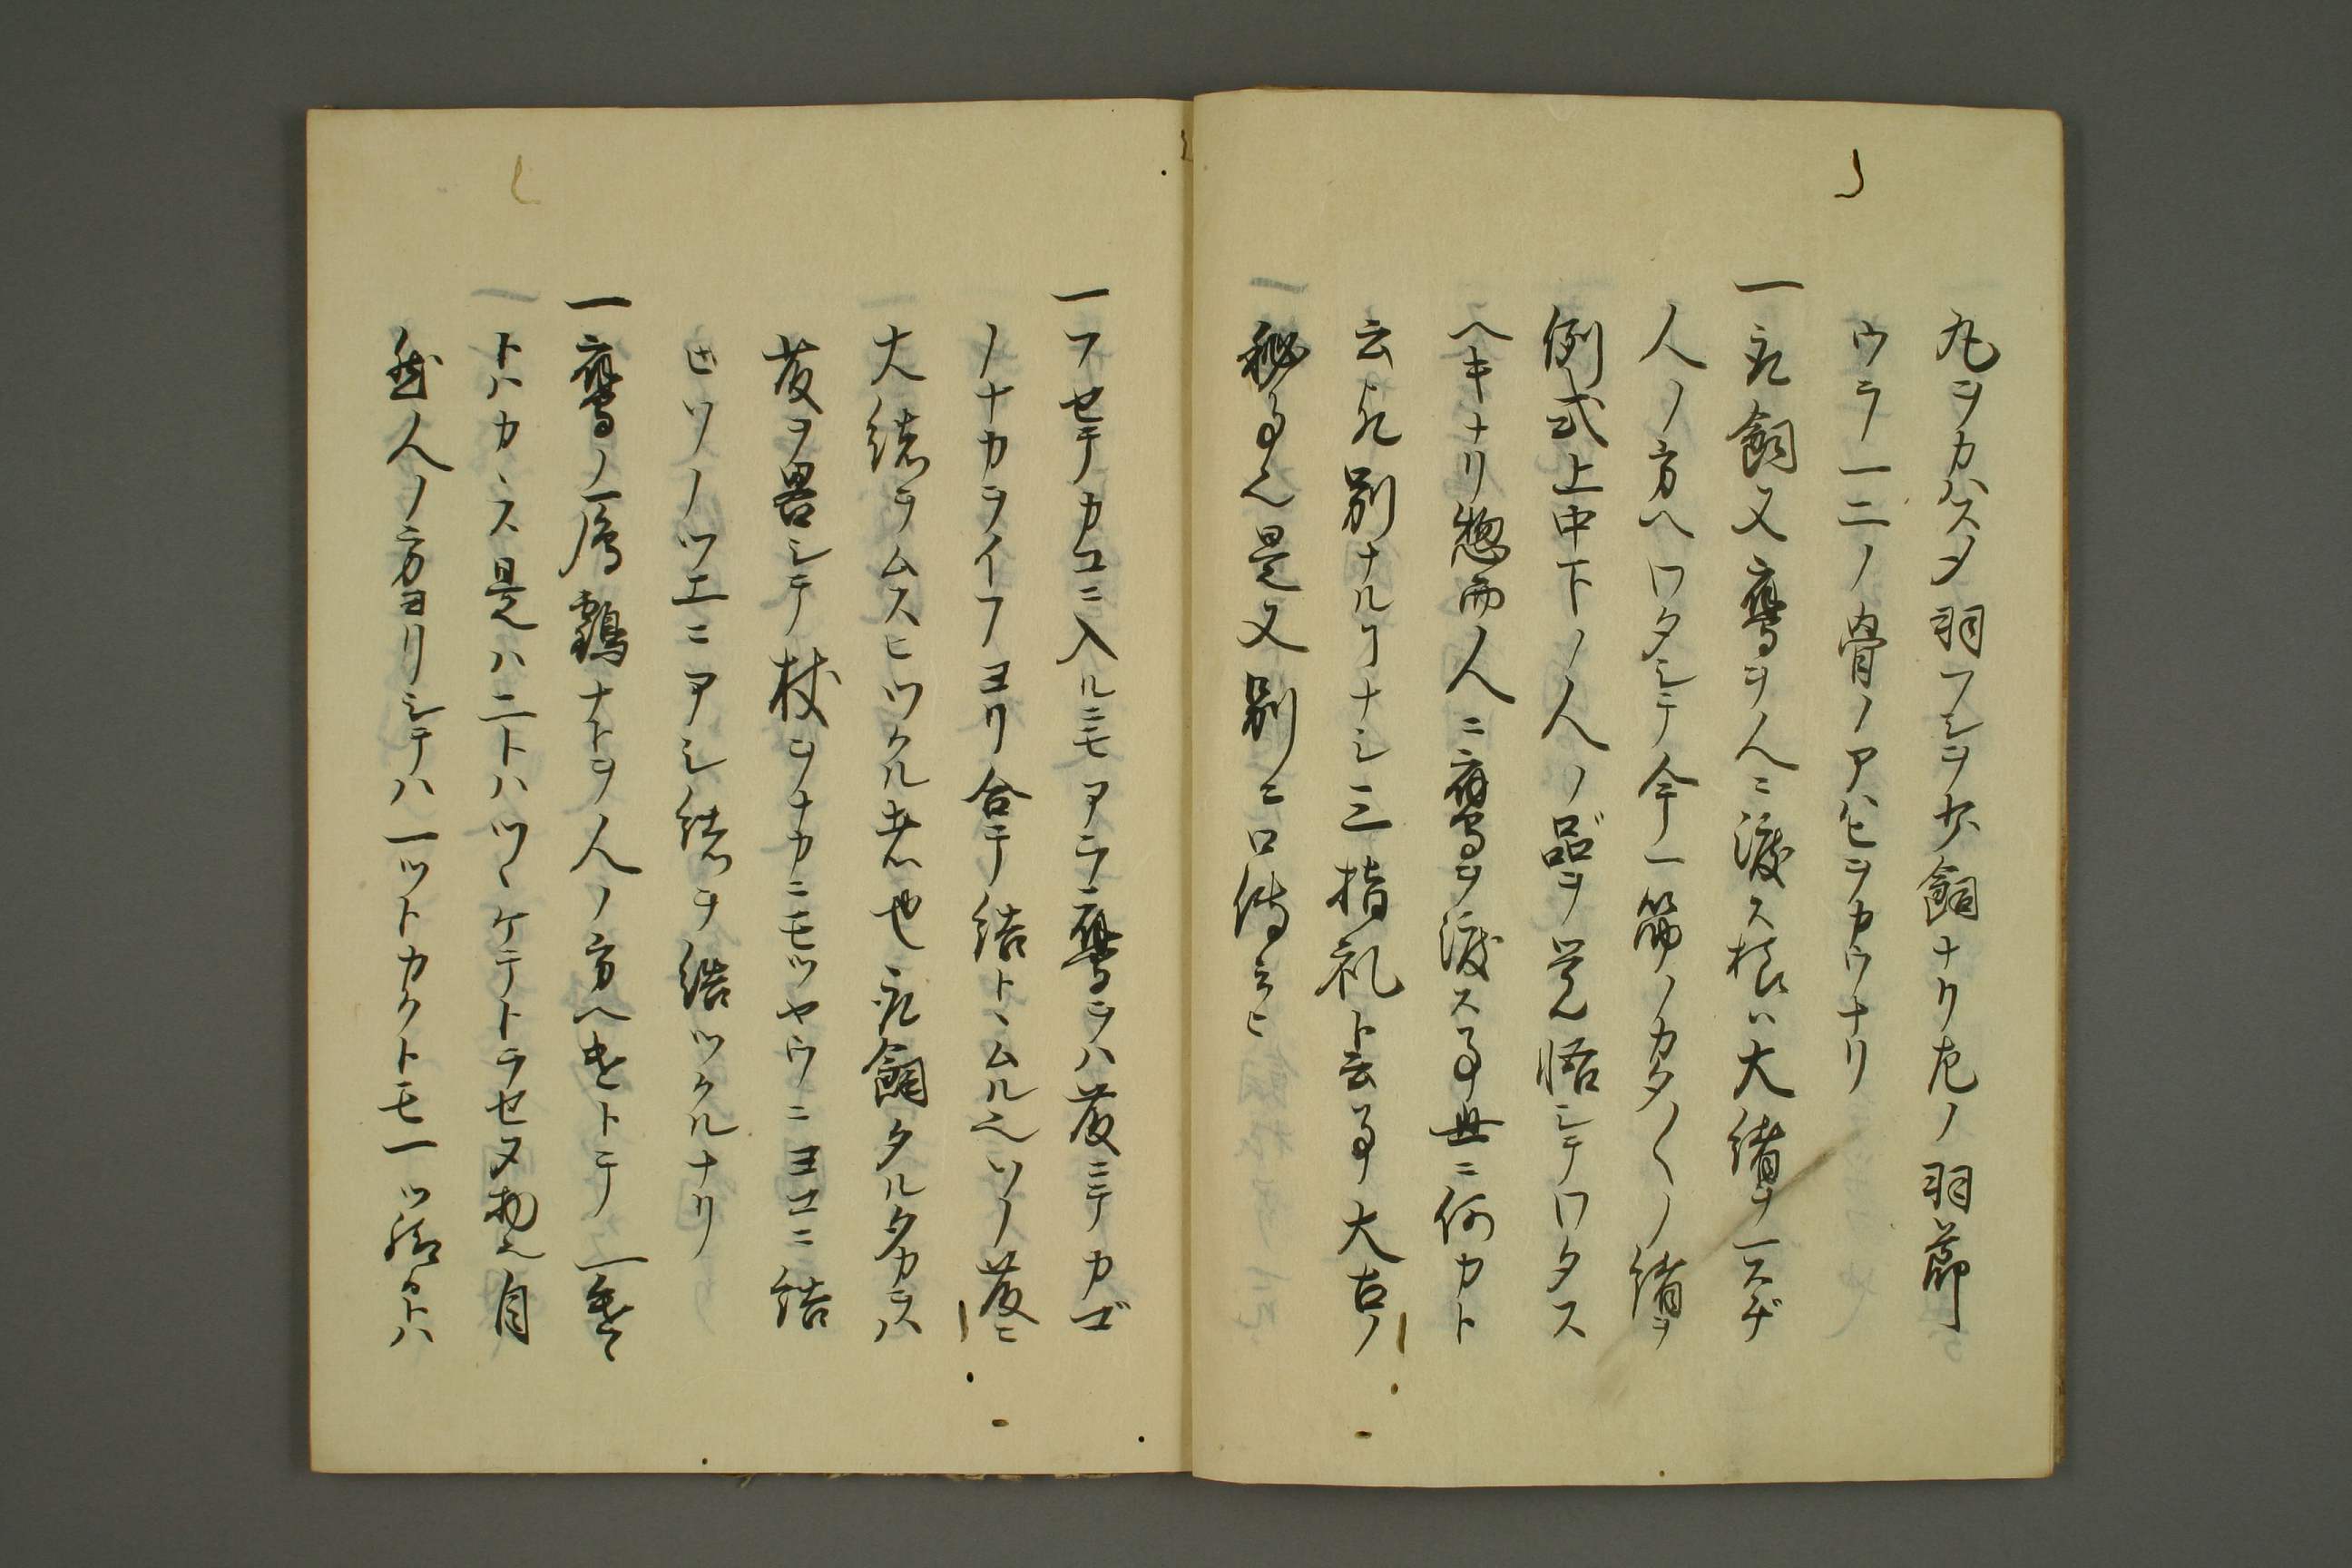 丸ヲカハスメ羽フシヲヤ飼ナリ左ノ羽節
ウラ一二ノ骨ノアハヒヲカウナリ
一 飼又鷹ヲ人ニ渡ス様ハ大緒ヲ一スヂ
人ノ方ヘワタシテ今一筋ノカタ〱ノ緒ヲ
例式上中下ノ人ノ品ヲ覚悟シテワタス
ヘキナリ惣而人ニ鷹ヲ渡ス事世ニ何カト
云 別ナルヿナシ三指礼ト云事大古ノ
秘事也是又別ニ口伝
一フセテカコニ入ルニモアラ鷹ヲハ葭ニテカゴ
ノナカライフヨリ合テ結トヽムル也ソノ葭ニ
大緒ヲムスヒツクル者也 飼タルタカヲハ
葭ヲ畧シテ杖ヲナカニモツヤウニヨコニ結
セソノツエニアシ緒ヲ結ツクルナリ
一鷹ノ雁鶴ナトヲ人ノ方ヘ トテ一
トハカヽス是ハ二トハツヽケテトラセヌ物也自
然人ノ方ヨリシテハ一ツトカクトモ一ツ トハ